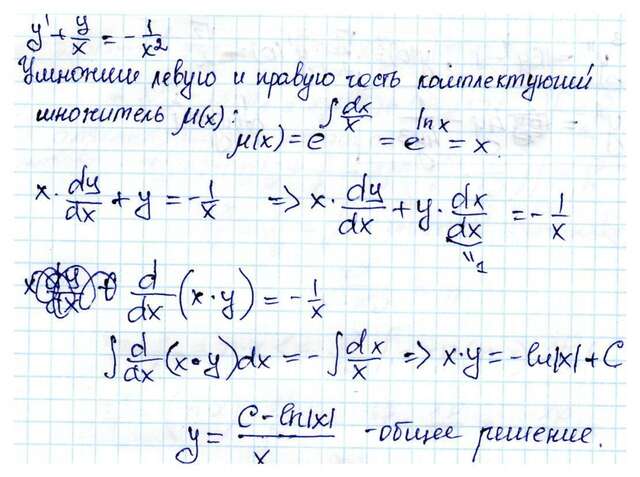 y' + y/x = -1/x²
Умножим левую и правую часть комплектующий
множитель μ(x):
μ(x) = e^∫dx/x = e^ln x = x.
x · dy/dx + y = -1/x => x · dy/dx + y · dx/dx = -1/x
"1
d/dx (x·y) = -1/x
∫ d/dx (x·y)dx = -∫ dx/x => x·y = -ln|x| + C
y = C - ln|x| / x - общее решение.